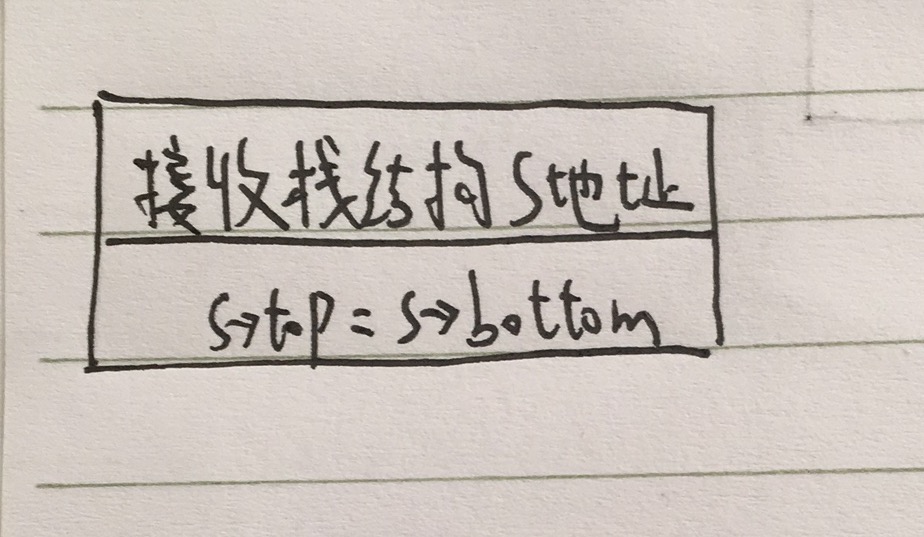 接收栈结构S地址
s→top = s→bottom